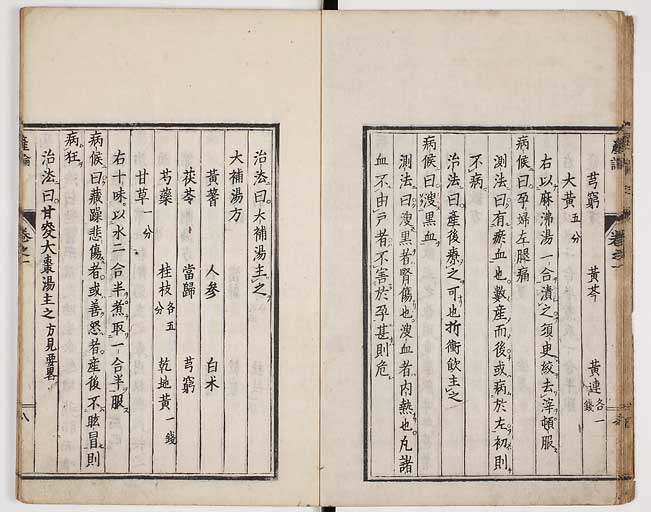 芎窮　黄芩　黄連各一錢
大黄五分
右以麻沸湯一合漬之須臾絞去滓頓服
病候曰孕婦左腿痛
測法曰有瘀血也數産而後或病於左初則
不病
治法曰産後療之可也折衝飲主之
病候曰溲黒血
測法曰溲黒者腎傷也溲血者内熱也凡諸
血不由戸者不害於孕甚則危
治法曰大補湯主之
大補湯方
黄蓍　人参　白朮
茯苓　當歸　芎窮
芍藥　桂枝各五分　乾地黄一錢
甘草一分
右十味以水二合半煮取一合半服
病候曰藏躁悲傷者或善怒者産後不眩冒則
病狂
治法曰甘麥大棗湯主之方見要畧
卷之一
八